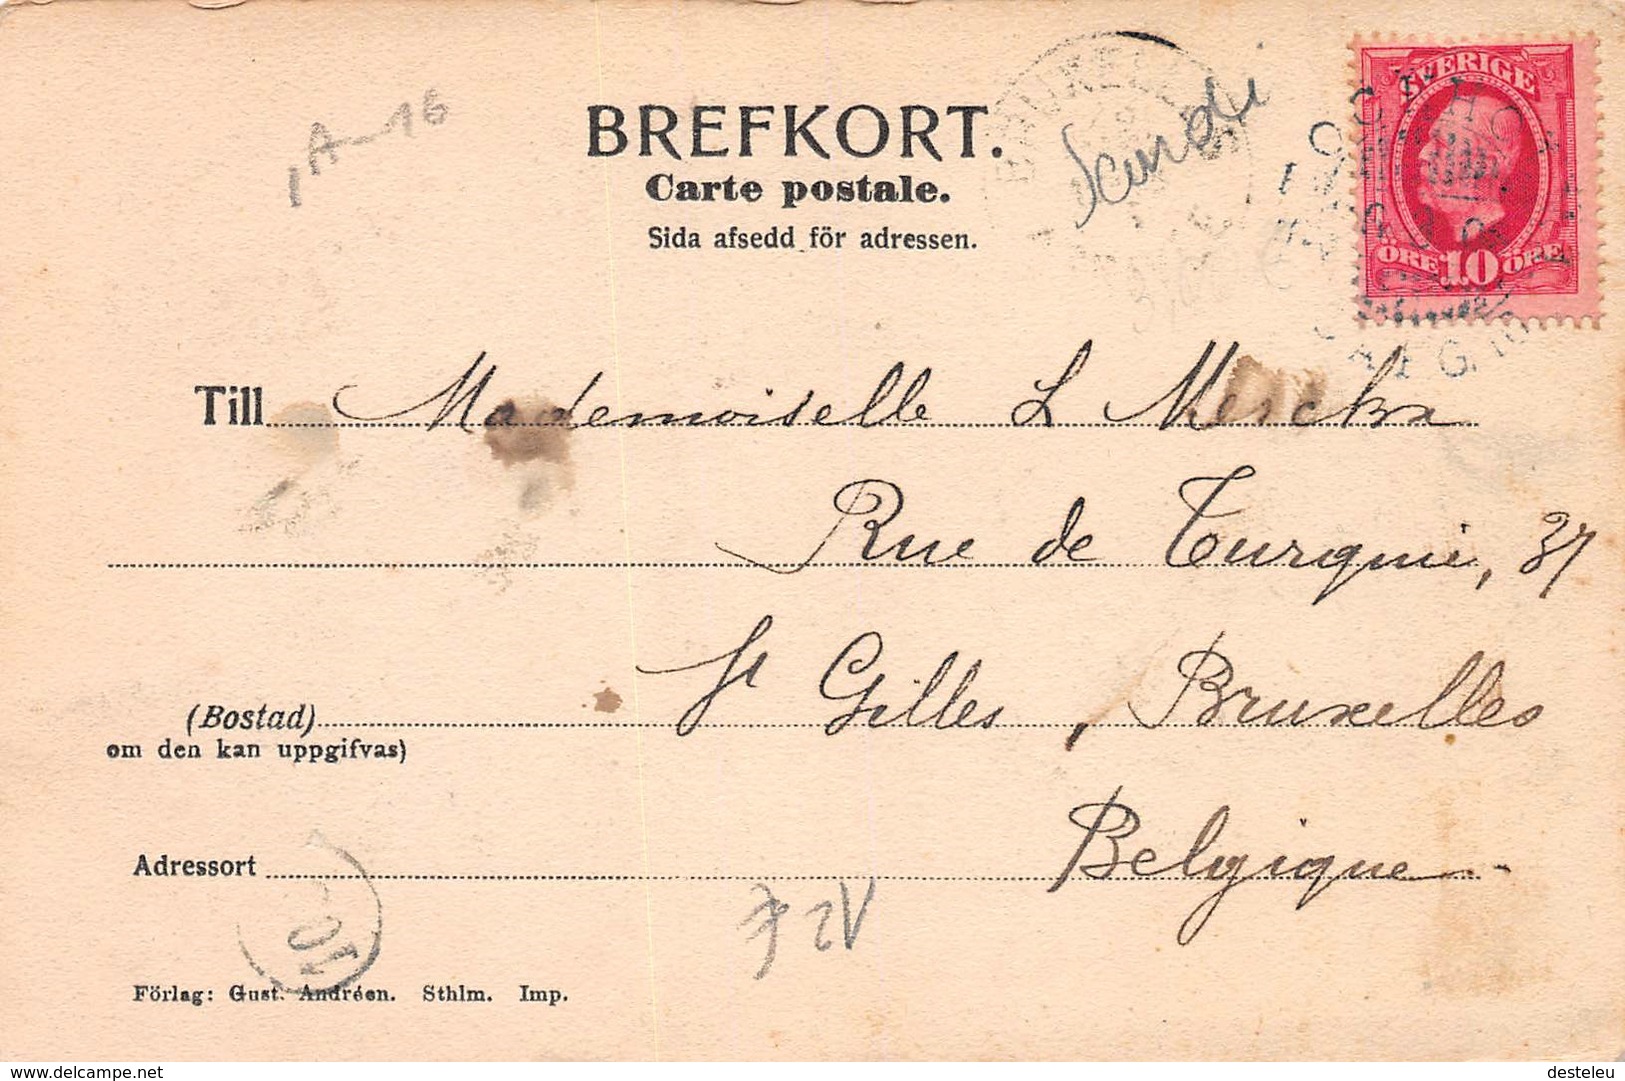 1A-16
BREFKORT.
Carte postale.
Sida afsedd för adressen.
SVERIGE
ÖRE 10 ÖRE
Till Mademoiselle L Merckx
Rue de Turquie, 37
St Gilles, Bruxelles
(Bostad)
om den kan uppgifvas)
Belgique
Adressort
Förlag: Gust. Andréen. Sthlm. Imp.
https://www.delcampe.net
desteleu